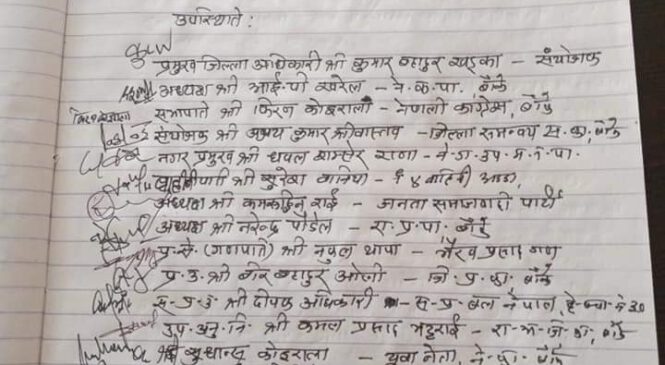 उपस्थिति :
प्रमुख जिल्ला अधिकारी श्री कुमार बहादुर खड्का – संयोजक
अध्यक्ष श्री आई.पी खरेल – ने.क.पा. बाँके
सभापति श्री किरण कोइराला – नेपाली काँग्रेस, बाँके
संयोजक श्री अजय कुमार श्रीवास्तव – जिल्ला समन्वय स.का, बाँके
नगर प्रमुख श्री धवल शम्शेर राणा – ने.गं.उप.म.न.पा.
श्री सुरेश
अध्यक्ष श्री राई – जनता समाजवादी पार्टी
अध्यक्ष श्री नरेन्द्र पौडेल – रा.प्र.पा. बाँके
प्र.से. (गणपति) श्री नुपुल थापा – भैरव प्रसाद गण
प्र.उ. श्री बीर बहादुर ओली – जि.प्र.का. बाँके
स.प्र.उ श्री दीपक अधिकारी – स.प्र.बल नेपाल,
उप.अनु.नि. श्री कमल प्रसाद भट्टराई – रा.अ.जि.का., बाँके
श्री सुधान्सु कोइराला – युवा नेता, ने.का. बाँके